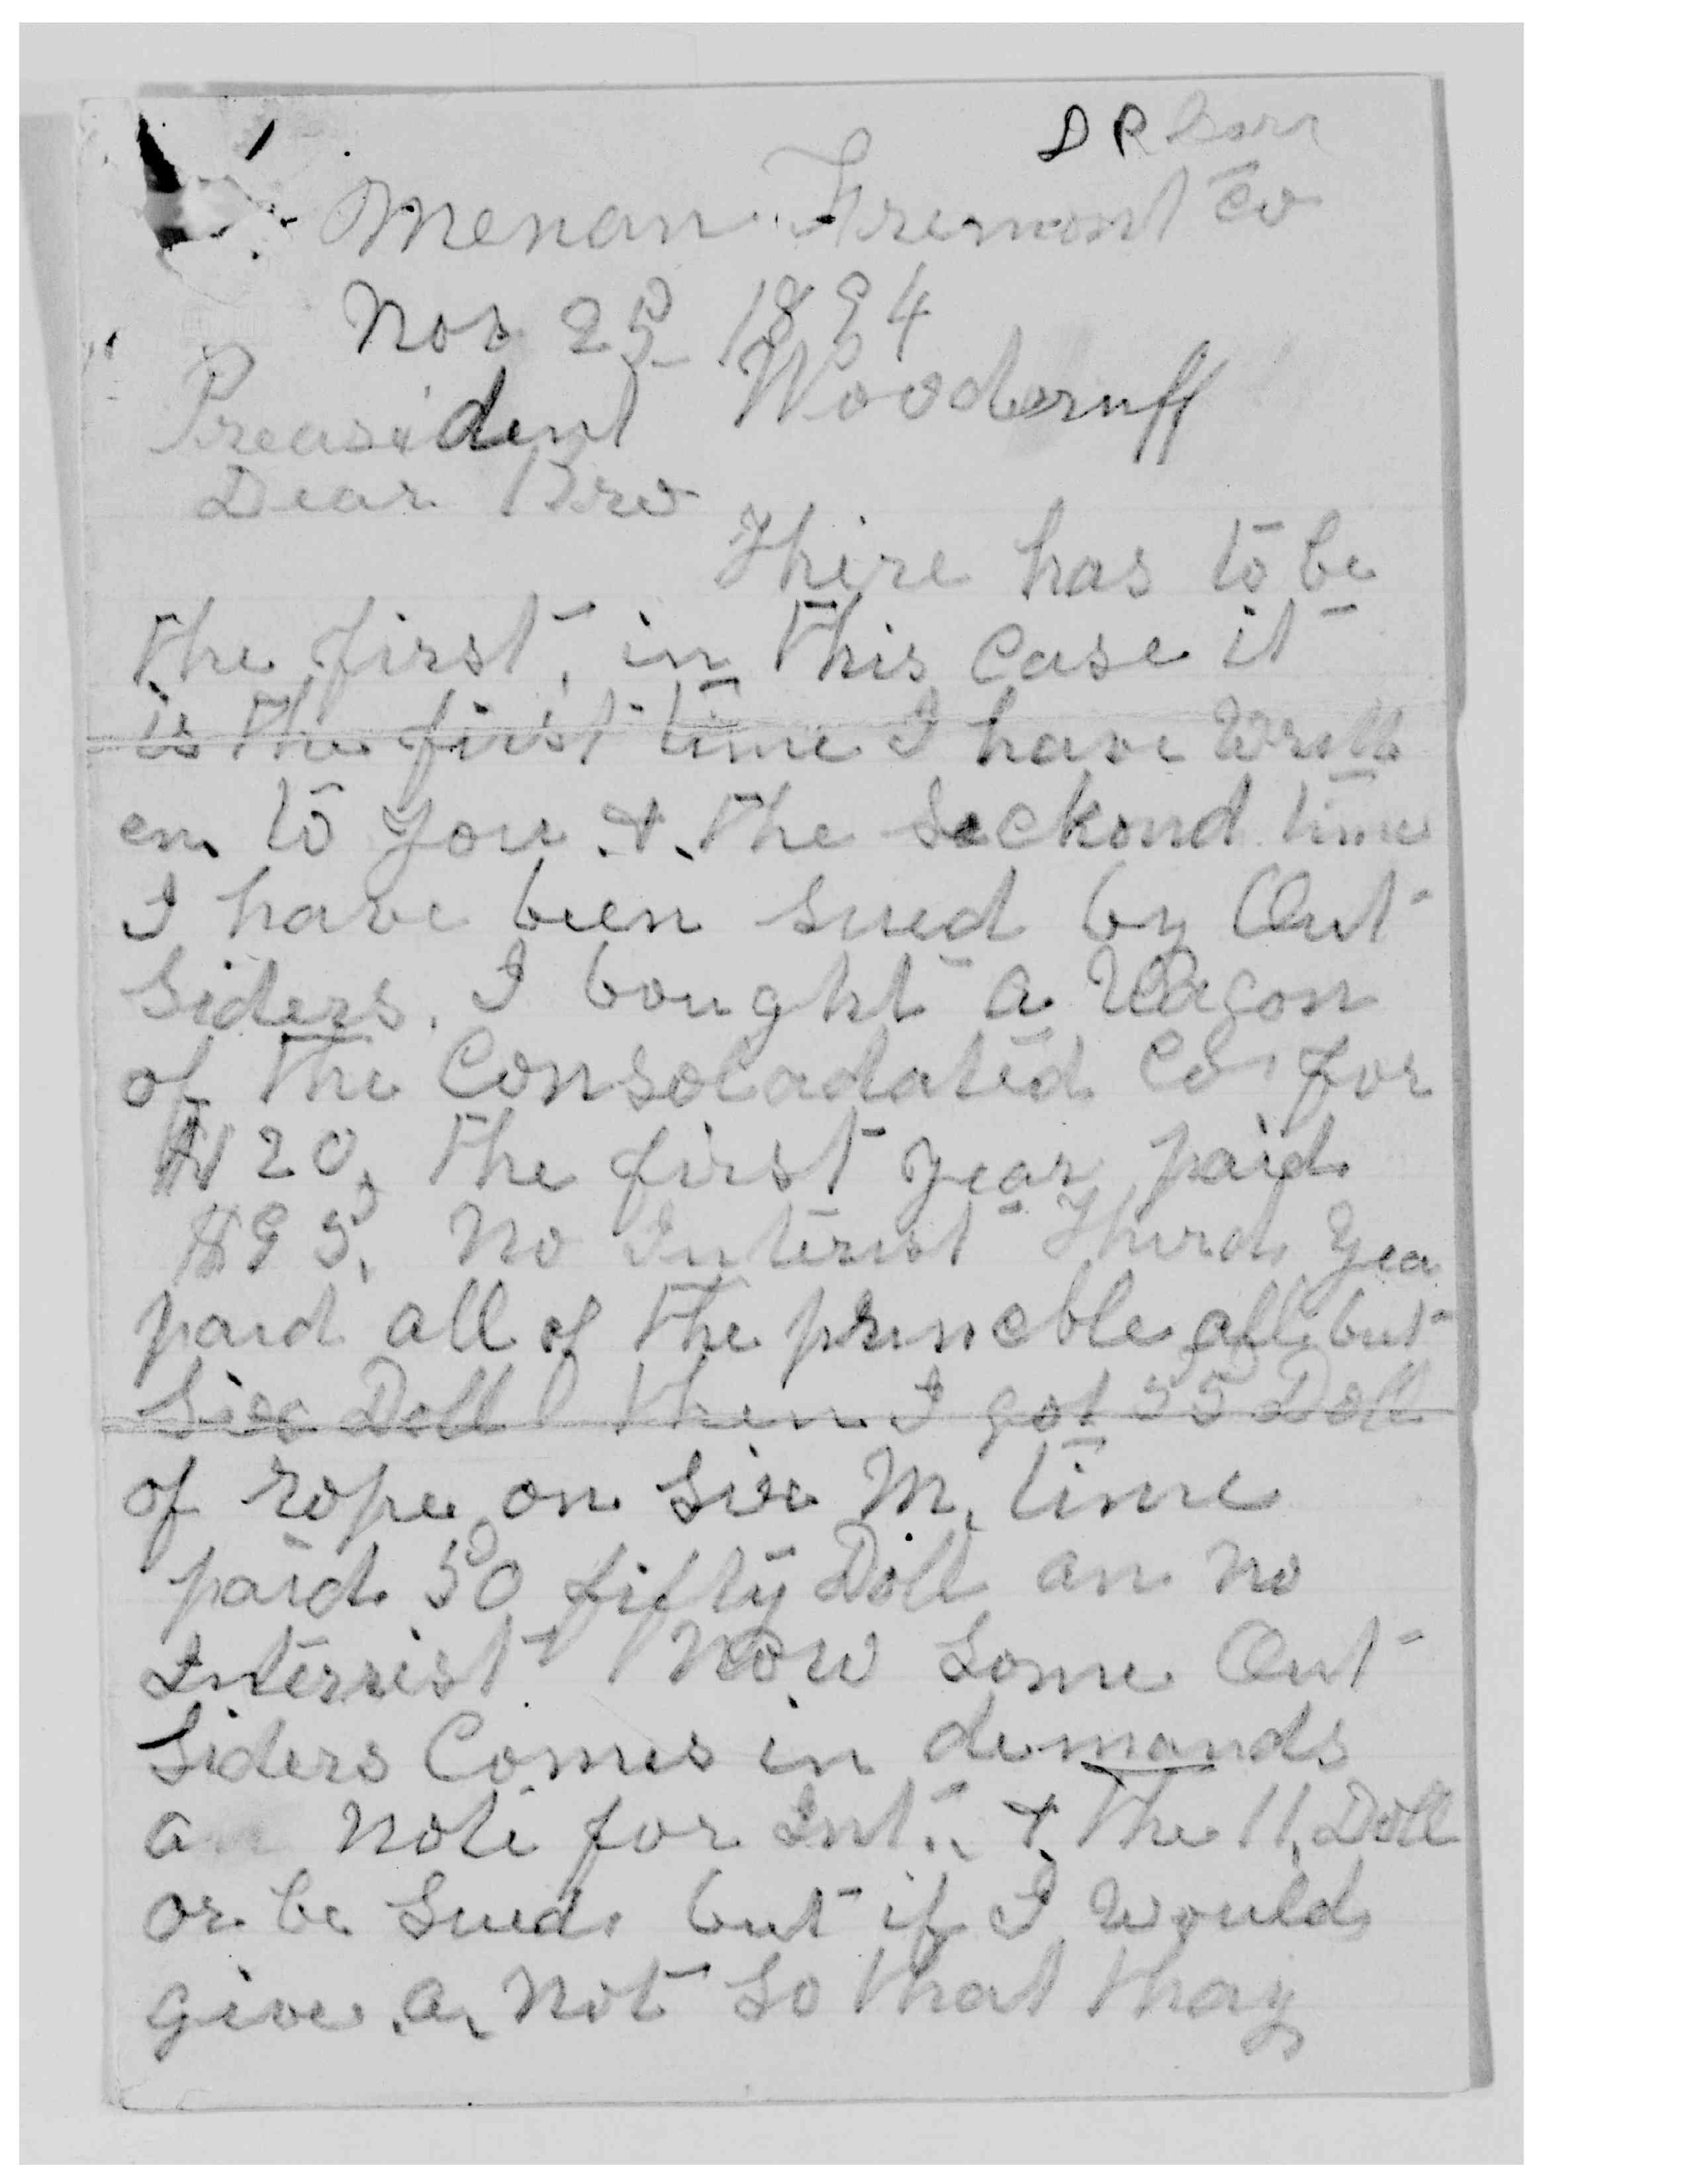 D R
Menan Fremont Co
Nov 25 1894
Preasident Wooderuff
Dear Bro
Thire has to be
the first, in this case it
is the first time I have writt
en to you & the seckond time
I have been sued by Out
siders, I bought a Wagon
of the Consoladated Co for
$120, the first year paid
$95, no Interist Third Yea
paid all of the princble all but
Six Doll then I got 55 Doll
of rope on Six M, time
paid 50 fifty Doll an no
Interrist Now some Out
siders Comes in demands
a note for Int. & the 11, Doll
or be sued, but if I would
give a not so that thay